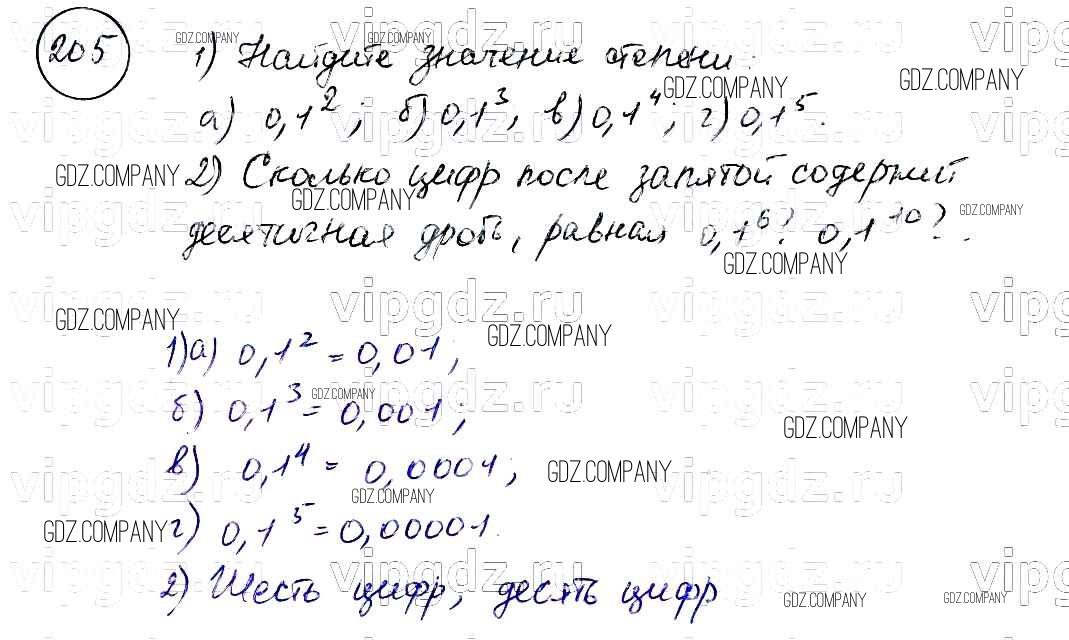 205
1) Найдите значение степени:
а) 0,1²; б) 0,1³; в) 0,1⁴; г) 0,1⁵.
2) Сколько цифр после запятой содержит
десятичная дробь, равная 0,1⁶? 0,1¹⁰?
1) а) 0,1² = 0,01;
б) 0,1³ = 0,001;
в) 0,1⁴ = 0,0001;
г) 0,1⁵ = 0,00001.
2) Шесть цифр, десять цифр
GDZ.COMPANY
vipgdz.ru